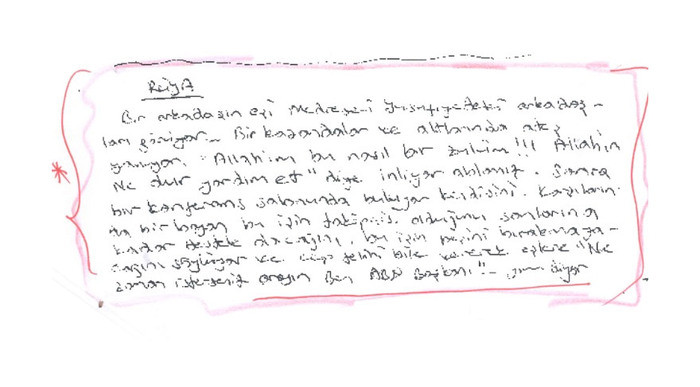 RüyA
Bir arkadaşın eşi Medrese-i Yusufiyedeki arkadaş-
ları görüyor.. Bir kazandalar ve altlarında ateş
yanıyor. "Allahım bu nasıl bir zulüm!!! Allahım
Ne olur yardım et" diye inliyor ablamız. Sonra
bir konferans salonunda buluyor kendisini. Karşıların-
da bir bayan bu işin takipçisi olduğunu sonlarına
kadar destek olacağını, bu işin peşini bırakmaya-
cağını söylüyor ve cep telini bile vererek "Ne
zaman isterseniz arayın Ben ABD Başkanı!" diyor